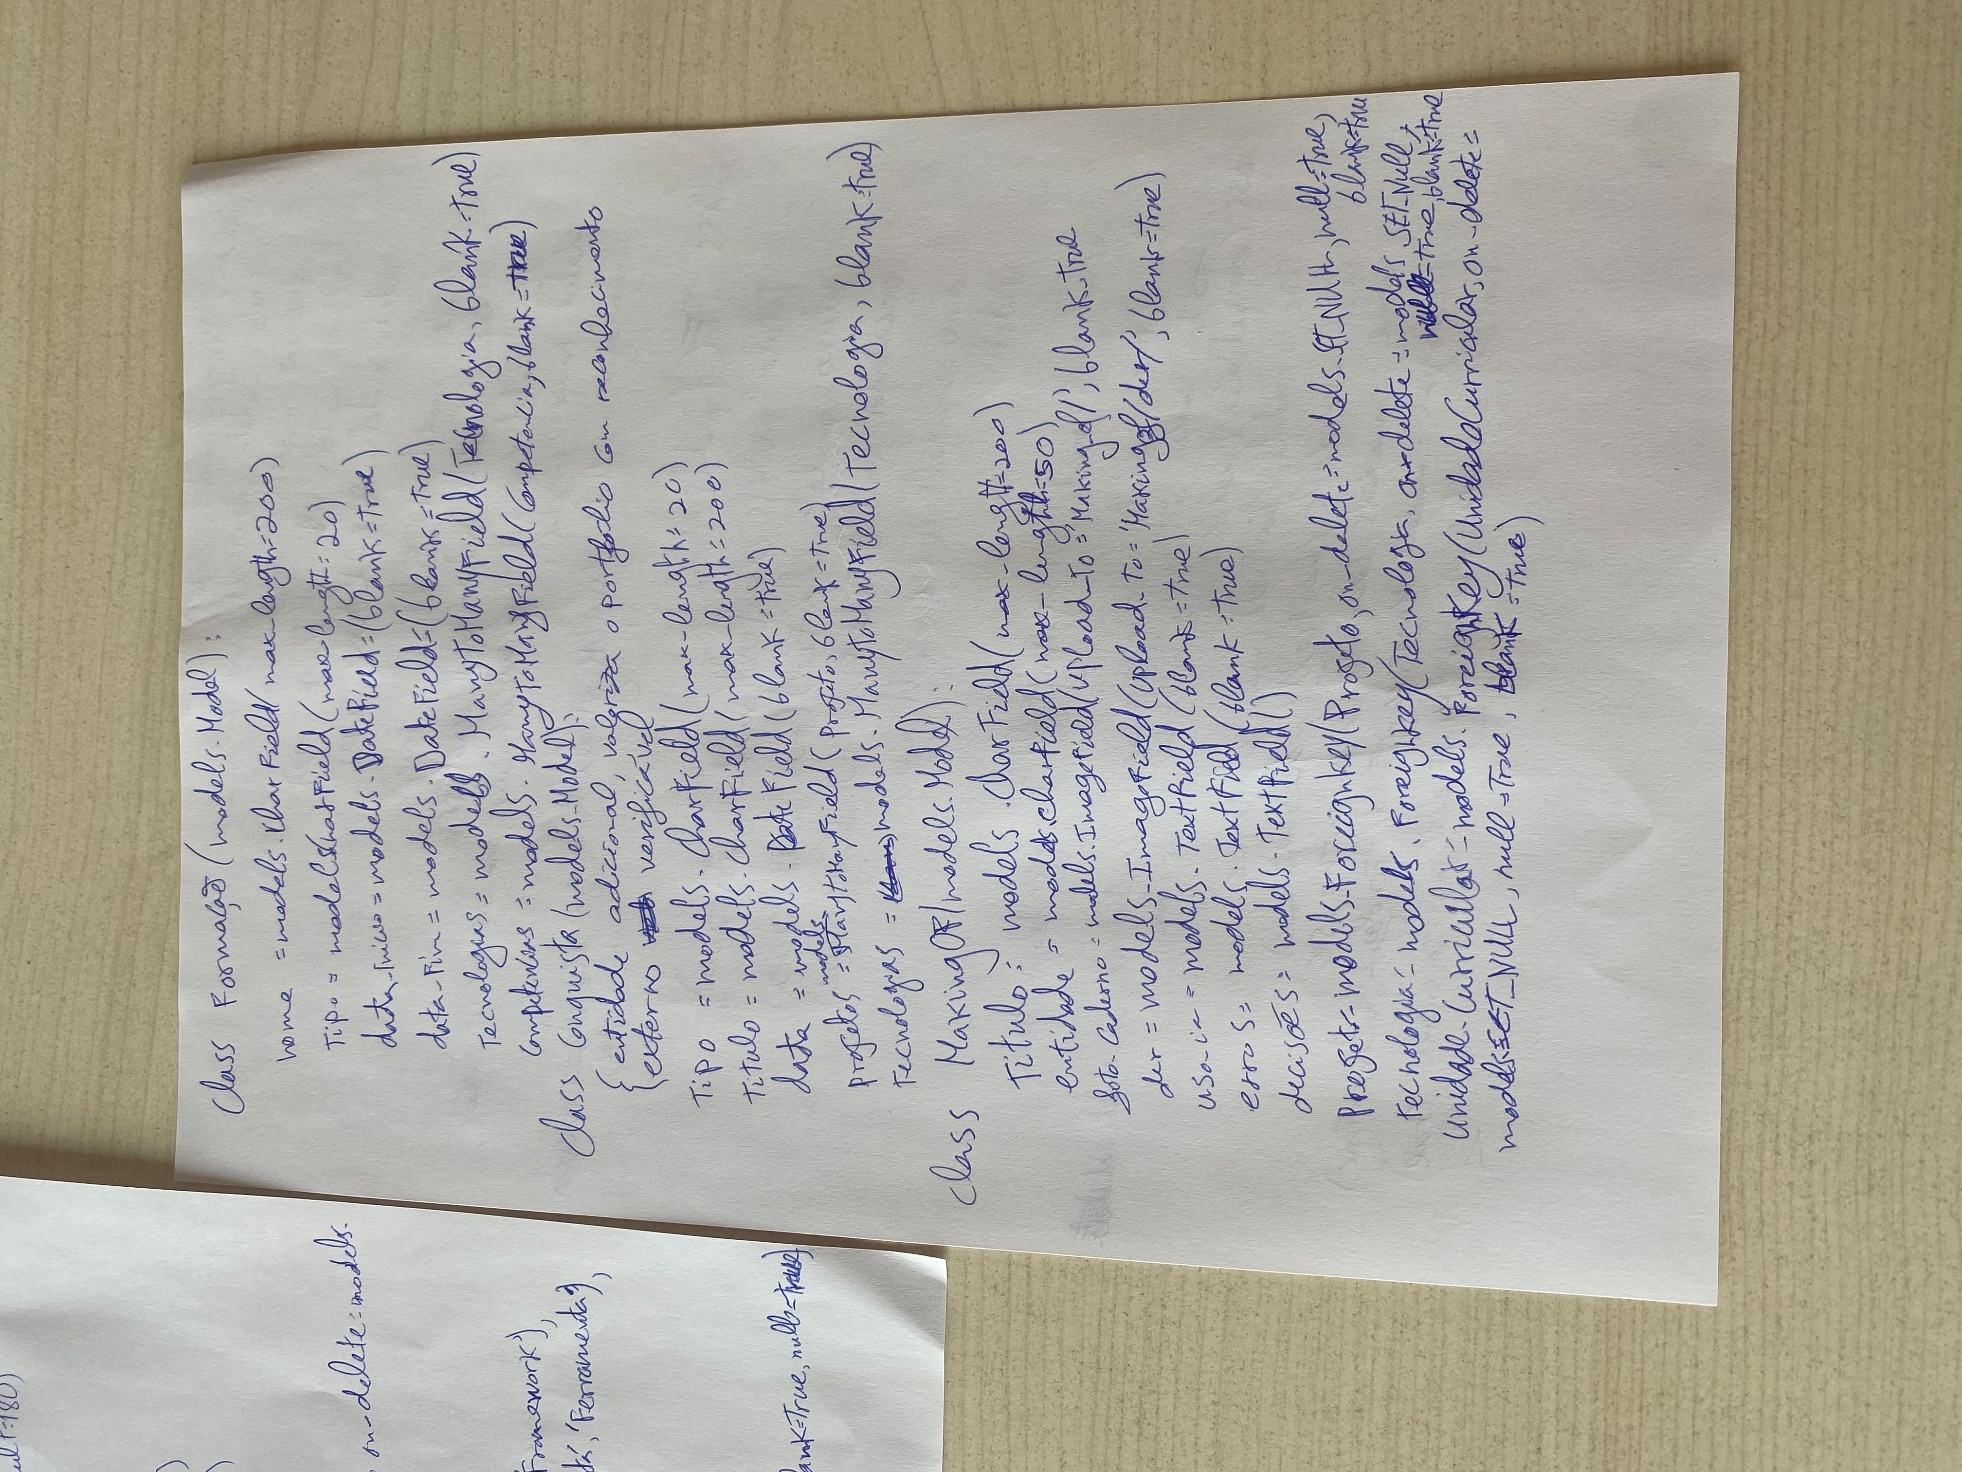 Class Formação (models.Model):
nome = models.CharField(max-length=200)
Tipo = models.CharField(max-length=20)
data_inicio = models.DateField=(blank=True)
data-Fim = models.DateField=(blank=True)
Tecnologias = models.ManyToManyField(Tecnologia, blank=True)
Competencias = models.ManyToManyField(Competencia, blank=True)
Class Conquista (models.Model):
{entidade adicional, valoriza o portfolio com reconhecimento
{externo verificável
Tipo = models.CharField(max-length=20)
Titulo = models.CharField(max-length=200)
data = models.DateField(blank=True)
projetos = models.ManyToManyField(Projeto, blank=True)
Tecnologias = models.ManyToManyField(Tecnologia, blank=True)
Class MakingOF(models.Model):
Titulo: models.CharField(max-length=200)
entidade = models.CharField(max-length=50)
foto-Caderno = models.ImageField(upload-To='Makingof/', blank=True
der = models.ImageField(upload-To='Makingof/der/', blank=True)
uso-ia = models.TextField(blank=True)
erros = models.TextField(blank=True)
decisões = models.TextField()
Projeto = models.ForeignKey(Projeto, on-delete=models.SET_NULL, null=True,
blank=True
Tecnologia = models.ForeignKey(Tecnologia, on-delete=models.SET_NULL,
null=True, blank=True
Unidade-Curricular = models.ForeignKey(UnidadeCurricular, on-delete=
models.SET_NULL, null=True, blank=True)
ult=180)
, on-delete=models.
Framework'),
'Ferramenta'),
ank=True, null=True)